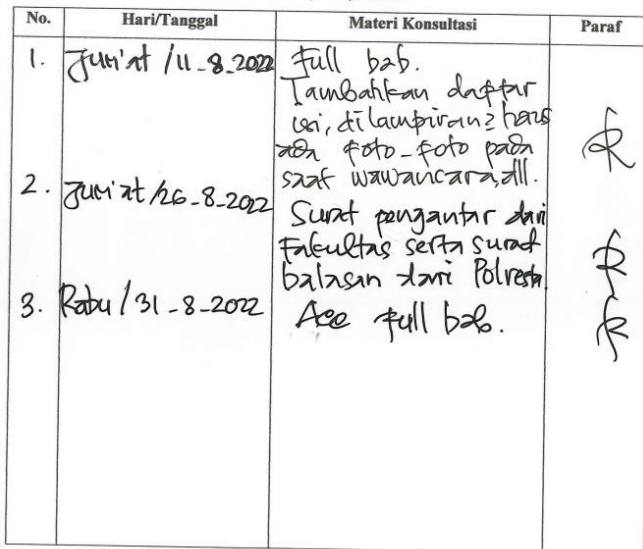 No. Hari/Tanggal Materi Konsultasi Paraf
1. Jum'at /11-8-2022 Full bab.
Tambahkan daftar
isi, dilampiran2 harus
ada foto-foto pada
saat wawancara, dll.
2. Jum'at /26-8-2022
Surat pengantar dari
Fakultas serta surat
balasan dari Polresta
3. Rabu /31-8-2022 Acc full bab.